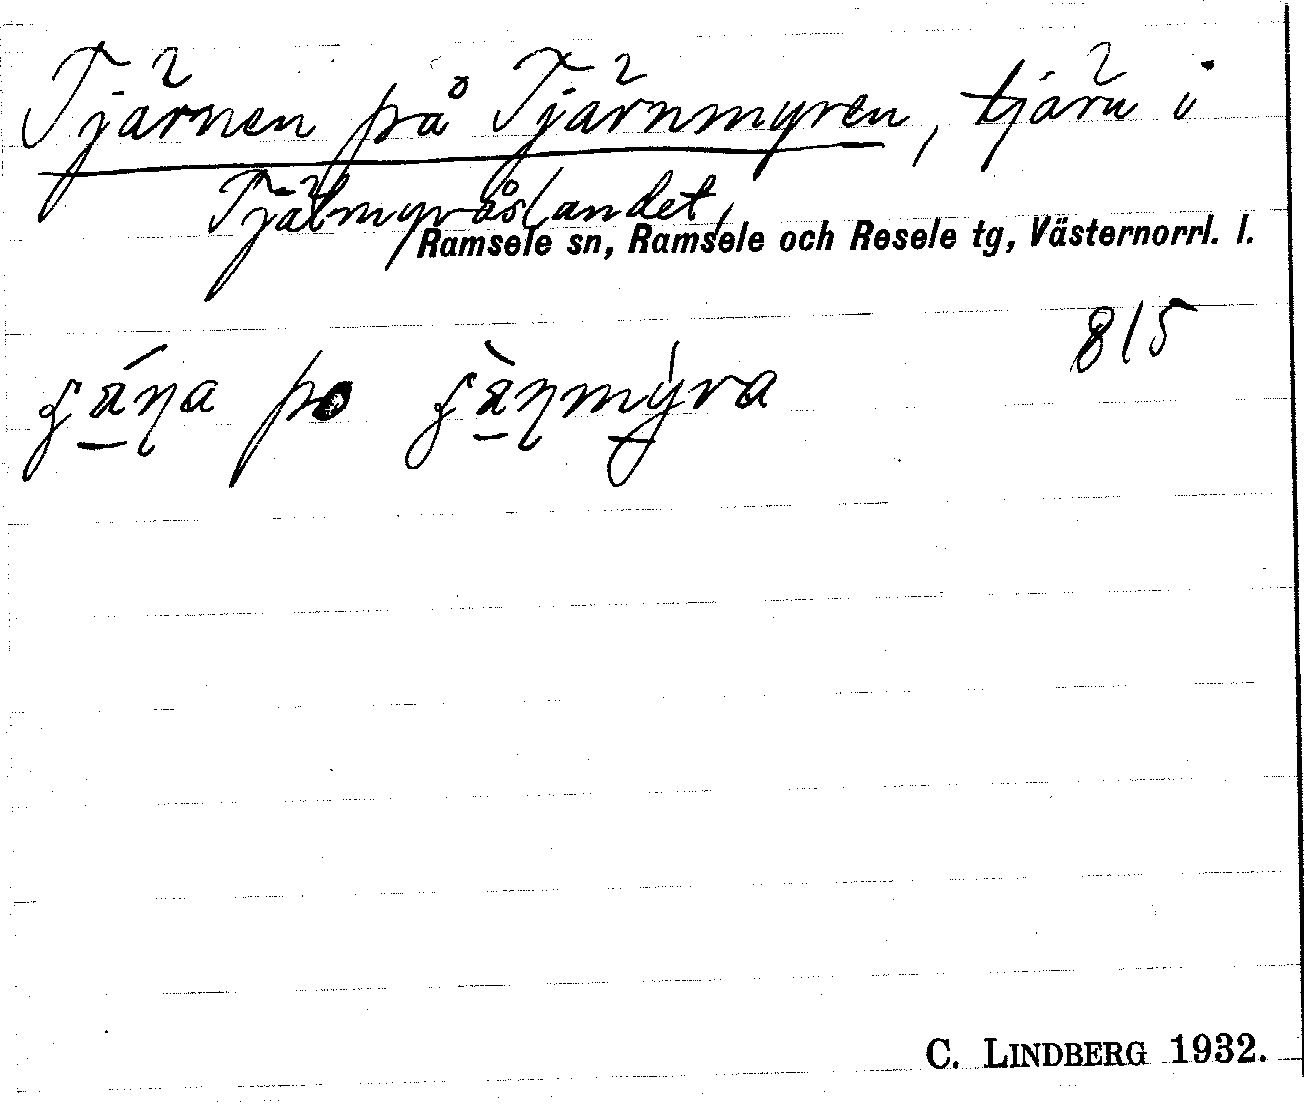 Tjärnen på Tjärnmyren, tjärn i
Tjälmyråslandet,
Ramsele sn, Ramsele och Resele tg, Västernorrl. l.
815
po
C. LINDBERG 1932.